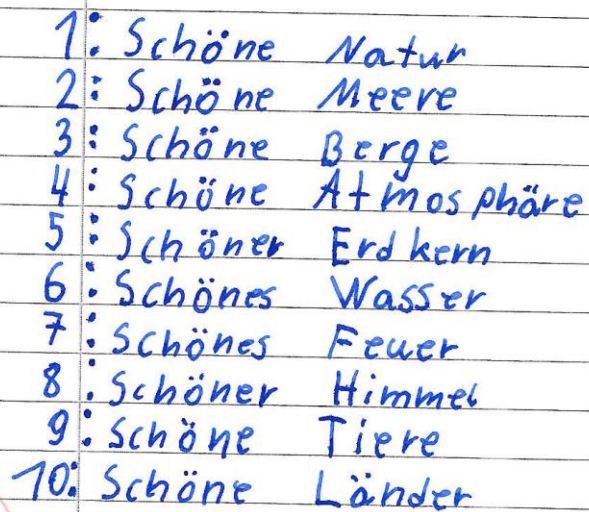 1: Schöne Natur
2: Schöne Meere
3: Schöne Berge
4: Schöne Atmosphäre
5: Schöner Erdkern
6: Schönes Wasser
7: Schönes Feuer
8: Schöner Himmel
9: Schöne Tiere
10: Schöne Länder